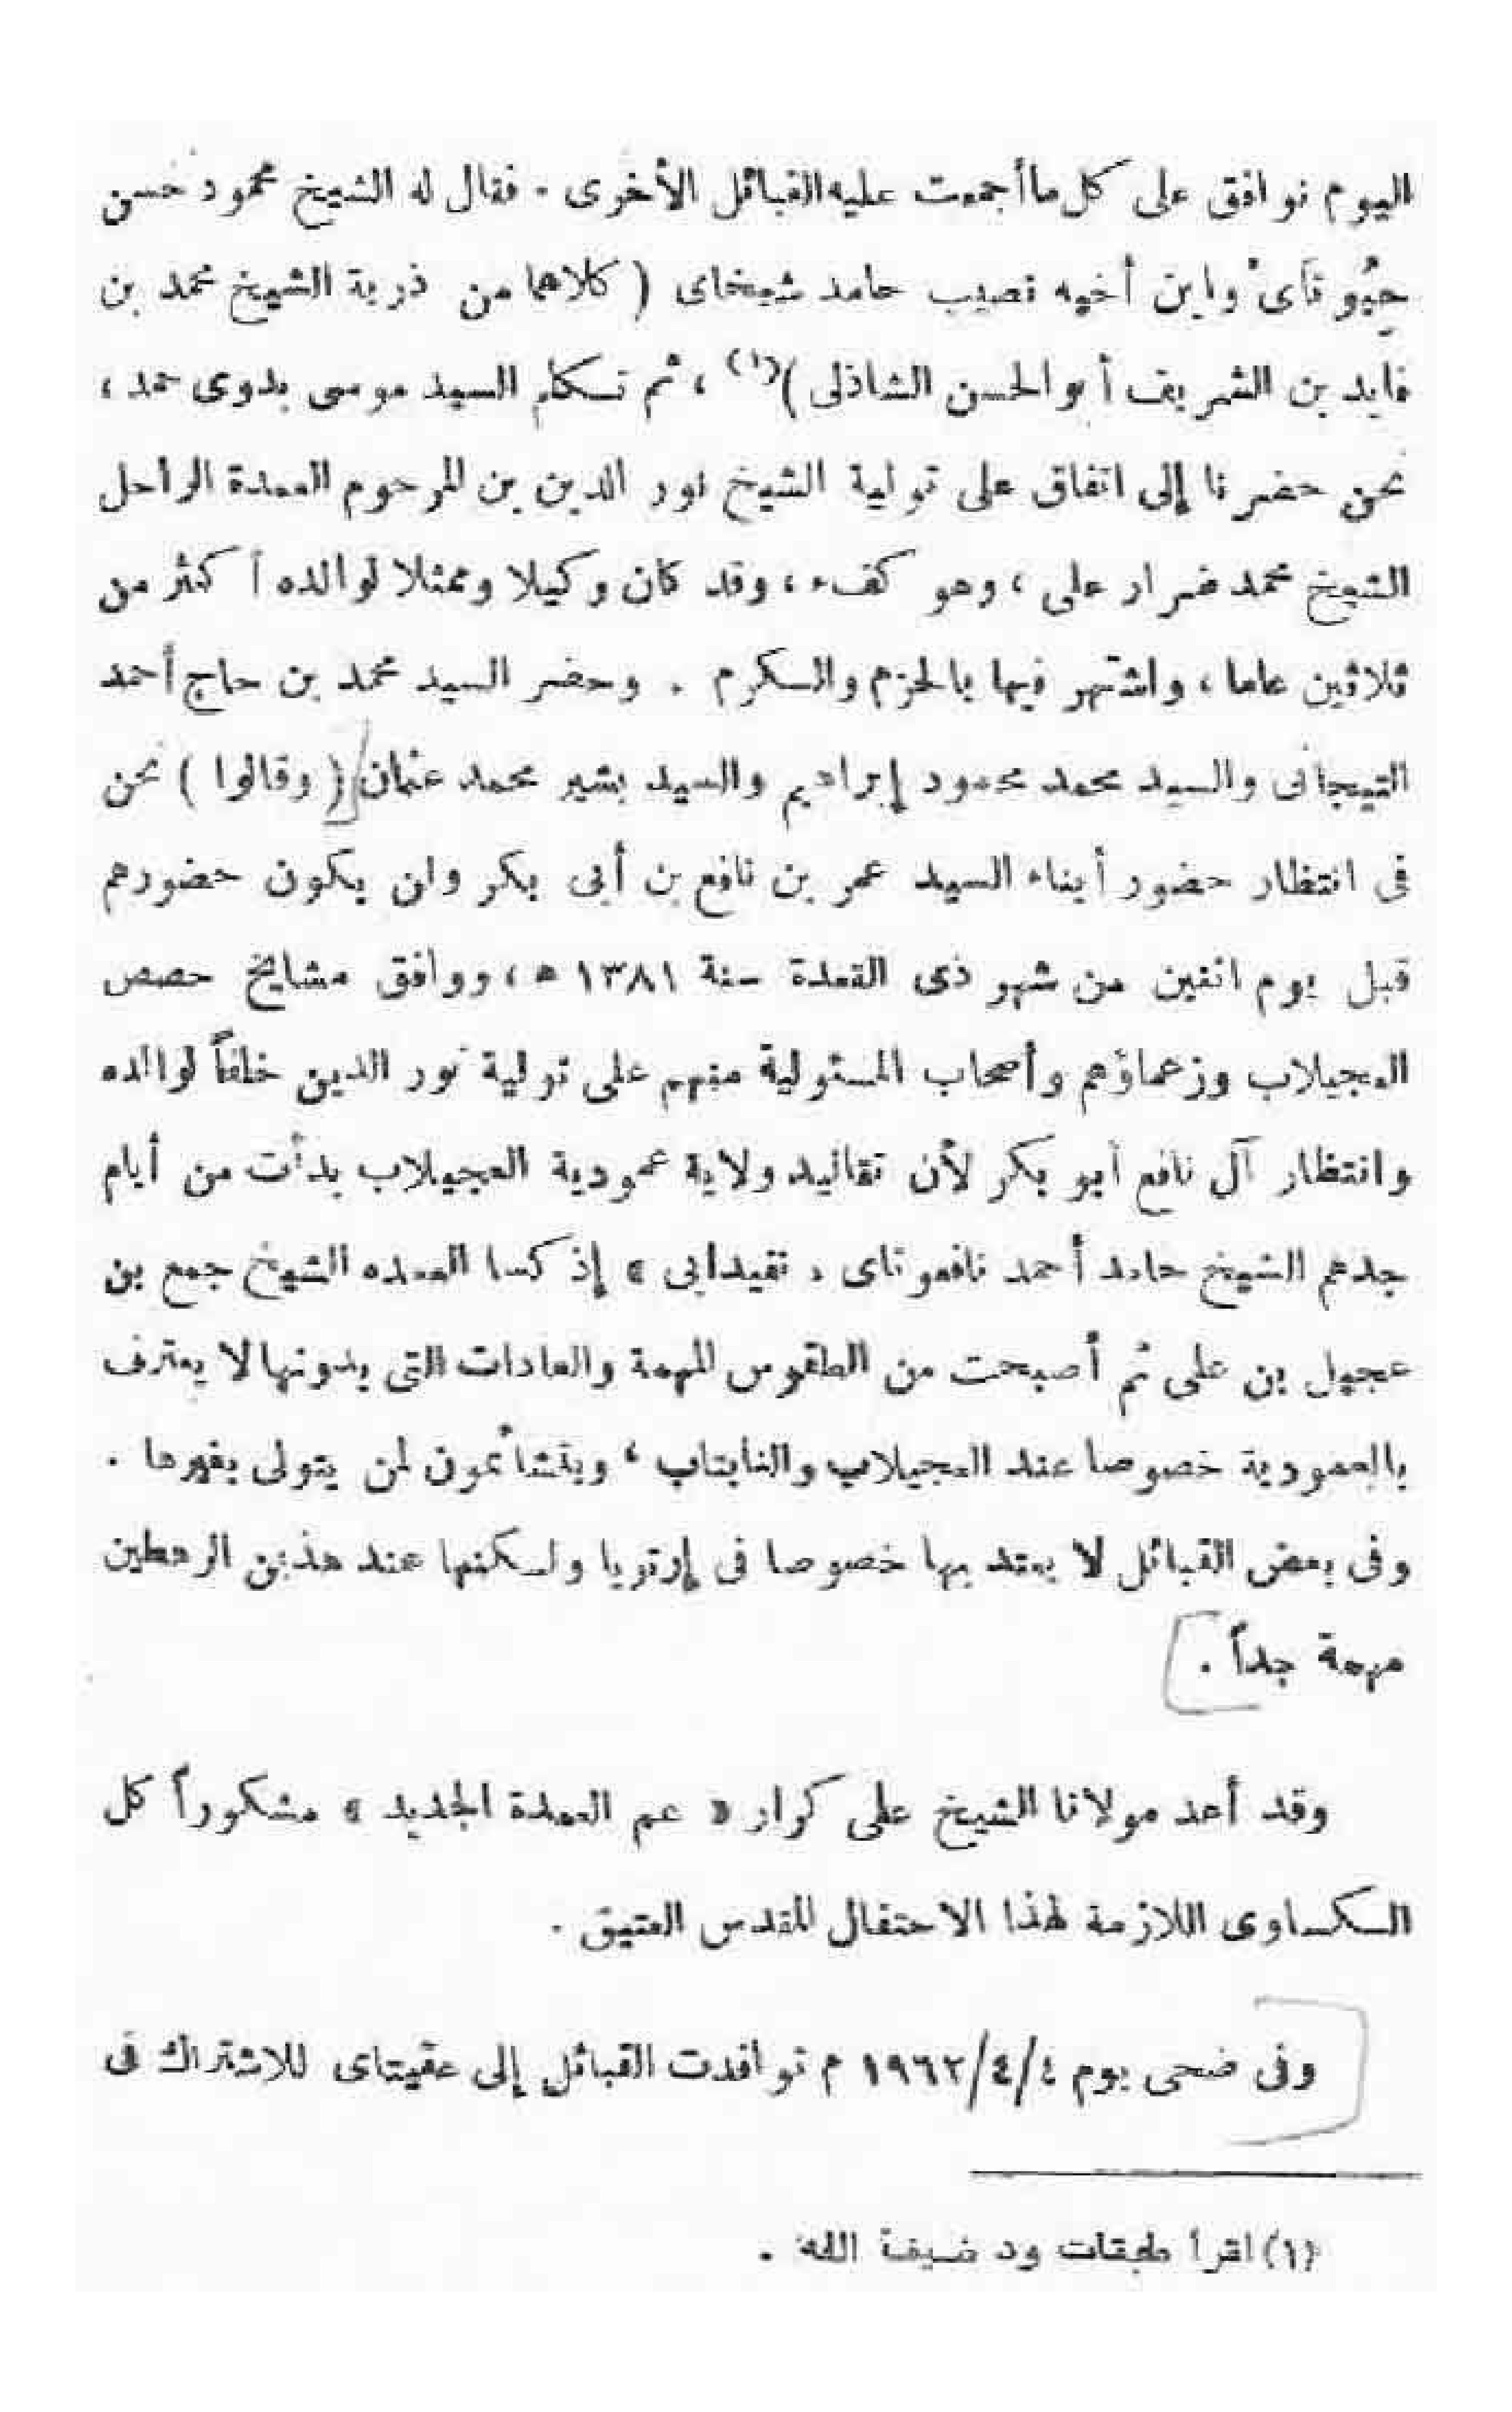 اليوم نوافق على كل ما أجمعت عليه القبائل الأخرى - فقال له الشيخ محمود حسن
حِيُو تَاىْ وابن أخيه نصيب حامد شيخاى ( كلاهما من ذرية الشيخ محمد بن
فايد بن الشريف أبو الحسن الشاذلى )(١) ، ثم تكلم السيد موسى بدوى حمد ،
نحن حضرنا إلى اتفاق على تولية الشيخ نور الدين بن المرحوم العمدة الراحل
الشيخ محمد ضرار على ، وهو كفء ، وقد كان وكيلا وممثلا لوالده أكثر من
ثلاثين عاما ، واشتهر فيها بالحزم والكرم . وحضر السيد محمد بن حاج أحمد
التيجانى والسيد محمد محمود إبراهيم والسيد بشير محمد عثمان ( وقالوا ) نحن
فى انتظار حضور أبناء السيد عمر بن نافع بن أبى بكر وان يكون حضورهم
قبل يوم اثنين من شهو ذى القعدة سنة ١٣٨١ هـ ، ووافق مشايخ حصص
العجيلاب وزعماؤهم وأصحاب المسئولية منهم على تولية نور الدين خلفاً لوالده
وانتظار آل نافع أبو بكر لأن تقاليد ولاية عمودية العجيلاب بدأت من أيام
جدهم الشيخ حامد أحمد نافعوتاى « نقيدابى » إذ كسا العمده الشيخ جمع بن
عجيل بن على ثم أصبحت من الطقوس المهمة والعادات التى بدونها لا يعترف
بالعمودية خصوصا عند العجيلاب والنابتاب ، ويتشأمون لمن يتولى بغيرها .
وفى بعض القبائل لا يعتد بها خصوصا فى إرتريا ولكنها عند هذين الرهطين
مهمة جداً .
وقد أعد مولانا الشيخ على كرار « عم العمدة الجديد » مشكوراً كل
الكساوى اللازمة لهذا الاحتفال المقدس العتيق .
وفى ضحى يوم ١٩٦٢/٤/٤ م توافدت القبائل إلى عقيتاى للاشتراك فى
(١) اقرأ طبقات ود ضيف الله .